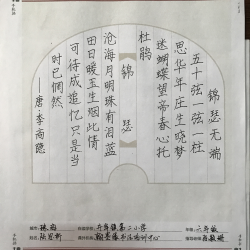 锦瑟无端
五十弦一弦一柱
思华年庄生晓梦
迷蝴蝶望帝春心托
杜鹃
锦瑟
沧海月明珠有泪蓝
田日暖玉生烟此情
可待成追忆只是当
时已惘然
——唐李商隐
第二小学
六年级
书法培训中心